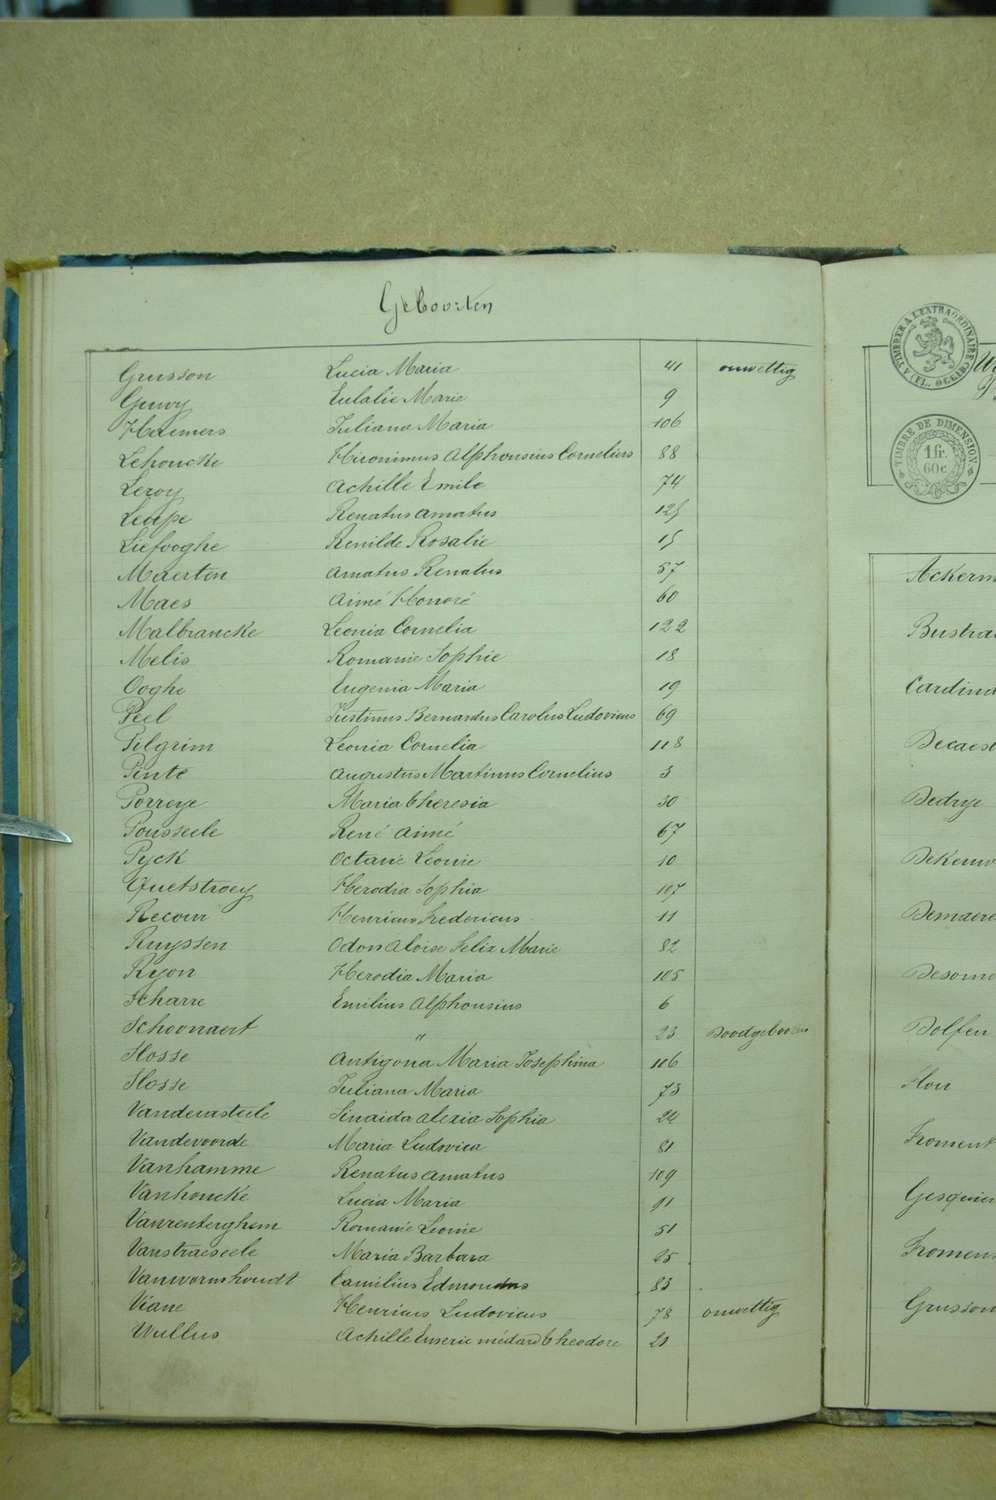 Geboorten
Grusson Lucia Maria 41 onwettig
Guwy Eulalie Marie 9
Haemers Juliana Maria 106
Lehoucke Hieronimus Alphonsius Cornelius 88
Leroy Achille Emile 74
Leupe Renatus Amatus 125
Liefooghe Renilde Rosalie 15
Maerten Amatus Renatus 57
Maes Aimé Honoré 60
Malbrancke Leonia Cornelia 122
Melis Romanie Sophie 18
Ooghe Eugenia Maria 19
Peel Justinus Bernardus Carolus Ludovicus 69
Pilgrim Leonia Cornelia 118
Pinte Augustus Martinus Cornelius 3
Porreye Maria Theresia 30
Pousseele René Aimé 67
Pyck Octavie Leonie 10
Quetstroey Herodia Sophia 107
Recour Henricus Fredericus 11
Ruyssen Odon Aloise Felix Marie 82
Ryon Herodia Maria 105
Scharre Emilius Alphonsius 6
Schoonaert " 23 Doodgeboren
Slosse Antigona Maria Josephina 116
Slosse Juliana Maria 73
Vandecasteele Sinaida Alexia Sophia 24
Vandevoorde Maria Ludovica 81
Vanhamme Renatus Amatus 109
Vanhoucke Lucia Maria 91
Vanrenterghem Romanie Leonie 51
Vanstraeseele Maria Barbara 25
Vanwormhoudt Camilius Edmondus 83
Viane Henricus Ludovicus 78 onwettig
Wullus Achille Emeric médard Theodore 21
TIMBRE À L'EXTRAORDINAIRE
(FL. OCCID.)
TIMBRE DE DIMENSION
1 fr.
60 c
Ackerm
Bustra
Cardina
Decaest
Dedrye
Dekeuw
Demaere
Desome
Dolfen
Flon
Froment
Gesquier
Fromen
Grusson